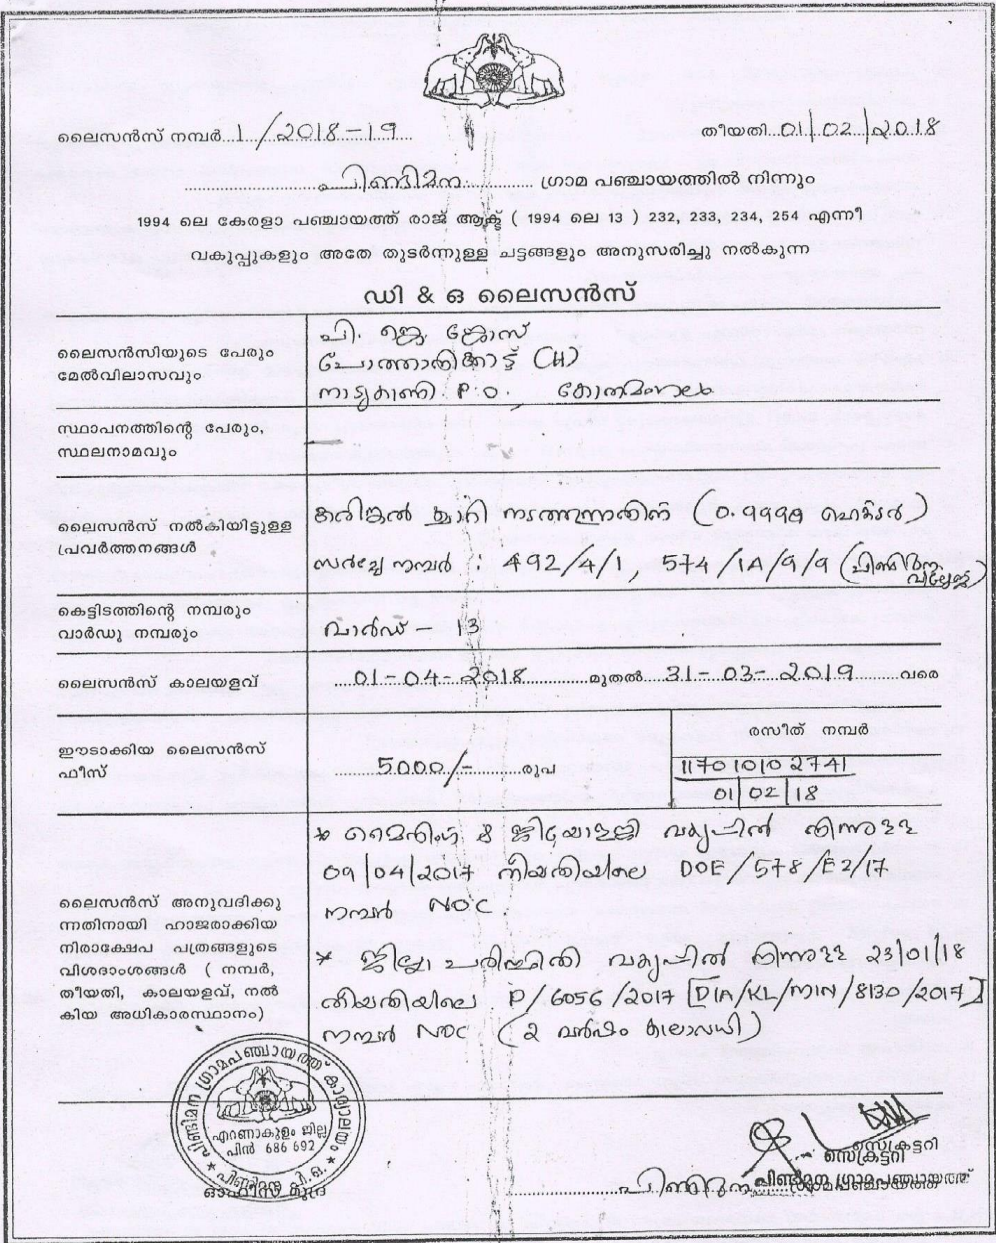 ലൈസൻസ് നമ്പർ 1/2018-19
തീയതി 01/02/2018
പിണ്ടിമന ഗ്രാമ പഞ്ചായത്തിൽ നിന്നും
1994 ലെ കേരളാ പഞ്ചായത്ത് രാജ് ആക്ട് ( 1994 ലെ 13 ) 232, 233, 234, 254 എന്നീ
വകുപ്പുകളും അതേ തുടർന്നുള്ള ചട്ടങ്ങളും അനുസരിച്ചു നൽകുന്ന
ഡി & ഒ ലൈസൻസ്
ലൈസൻസിയുടെ പേരും
മേൽവിലാസവും
പി. ജെ. ജോസ്
പോത്താനിക്കാട്ട് (H)
നാടുകാണി P.O., കോതമംഗലം
സ്ഥാപനത്തിന്റെ പേരും,
സ്ഥലനാമവും
—
ലൈസൻസ് നൽകിയിട്ടുള്ള
പ്രവർത്തനങ്ങൾ
കരിങ്കൽ ക്വാറി നടത്തുന്നതിന് (0.9999 ഹെക്ടർ)
സർവ്വേ നമ്പർ : 492/4/1, 574/1A/9/9 (പിണ്ടിമന
വില്ലേജ്)
കെട്ടിടത്തിന്റെ നമ്പരും
വാർഡു നമ്പരും
വാർഡ് - 13
ലൈസൻസ് കാലയളവ്
01-04-2018 മുതൽ 31-03-2019 വരെ
ഈടാക്കിയ ലൈസൻസ്
ഫീസ്
5000/- രൂപ
രസീത് നമ്പർ
117010102741
01/02/18
ലൈസൻസ് അനുവദിക്കു
ന്നതിനായി ഹാജരാക്കിയ
നിരാക്ഷേപ പത്രങ്ങളുടെ
വിശദാംശങ്ങൾ ( നമ്പർ,
തീയതി, കാലയളവ്, നൽ
കിയ അധികാരസ്ഥാനം)
* മൈനിംഗ് & ജിയോളജി വകുപ്പിൽ നിന്നുള്ള
09/04/2017 തീയതിയിലെ DOE/578/E2/17
നമ്പർ NOC.
* ജില്ലാ പരിസ്ഥിതി വകുപ്പിൽ നിന്നുള്ള 23/01/18
തീയതിയിലെ P/6056/2017 [DIA/KL/MIN/8130/2017]
നമ്പർ NOC (2 വർഷം കാലാവധി)
പിണ്ടിമന ഗ്രാമപഞ്ചായത്ത് കാര്യാലയം
എറണാകുളം ജില്ല
പിൻ 686 692
പിണ്ടിമന പി.ഒ.
ഓഫീസ് മുദ്ര
സെക്രട്ടറി
സെക്രട്ടറി
പിണ്ടിമന ഗ്രാമപഞ്ചായത്ത്
പിണ്ടിമന ഗ്രാമപഞ്ചായത്ത്